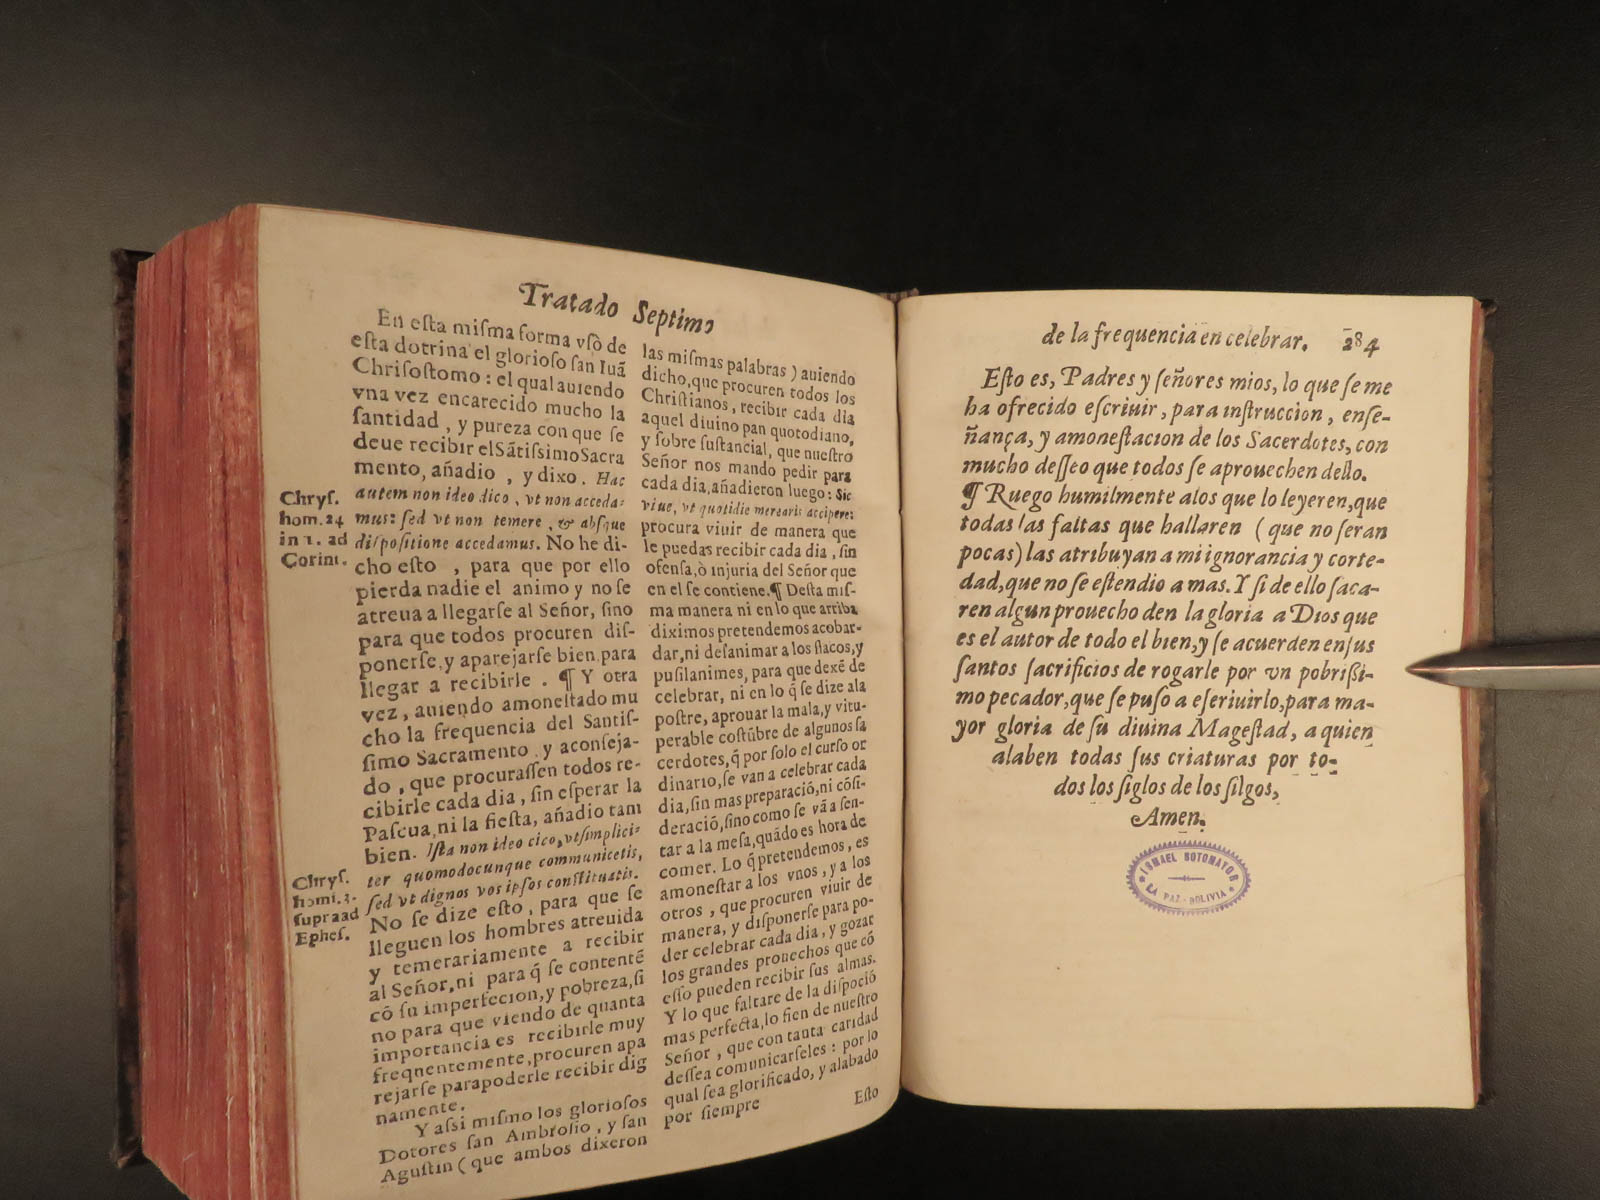 Tratado Septimo
En eſta miſma forma vsò de
eſta dotrina el glorioſo ſan Iuã
Chriſoſtomo : el qual auiendo
vna vez encarecido mucho la
ſantidad , y pureza con que ſe
deue recibir el Sãtiſsimo Sacra
mento, añadio , y dixo. Hac
autem non ideo dico , vt non acceda-
mus: ſed vt non temere , & abſque
diſpoſitione accedamus. No he di-
cho eſto , para que por ello
pierda nadie el animo y no ſe
atreua a llegarſe al Señor, ſino
para que todos procuren diſ-
ponerſe, y aparejarſe bien para
llegar a recibirle . ¶ Y otra
vez, auiendo amoneſtado mu
cho la frequencia del Santiſ-
ſimo Sacramento , y aconſeja-
do , que procuraſſen todos re-
cibirle cada dia , ſin eſperar la
Paſcua, ni la fieſta, añadio tam
bien. Iſta non ideo cico, vt ſimplici-
ter quomodocunque communicetis,
ſed vt dignos vos ipſos conſtituatis.
No ſe dize eſto , para que ſe
lleguen los hombres atreuida
y temerariamente a recibir
al Señor, ni para q̃ ſe contentẽ
cõ ſu imperfecion, y pobreza, ſi
no para que viendo de quanta
importancia es recibirle muy
freqnentemente, procuren apa
rejarſe para poderle recibir dig
namente.
Y aſsi miſmo los glorioſos
Dotores ſan Ambroſio , y ſan
Aguſtin ( que ambos dixeron
Chryſ.
hom. 24
in 1. ad
Corint.
Chryſ.
homi. 3.
ſupra ad
Epheſ.
las miſmas palabras ) auiendo
dicho, que procuren todos los
Chriſtianos , recibir cada dia
aquel diuino pan quotodiano,
y ſobre ſuſtancial, que nueſtro
Señor nos mando pedir para
cada dia, añadieron luego : Sic
viue, vt quotidie merearis accipere:
procura viuir de manera que
le puedas recibir cada dia , ſin
ofenſa, ò injuria del Señor que
en el ſe contiene. ¶ Deſta miſ-
ma manera ni en lo que arriba
diximos pretendemos acobar-
dar, ni deſanimar a los flacos, y
puſilanimes, para que dexẽ de
celebrar, ni en lo q̃ ſe dize ala
poſtre, aprouar la mala, y vitu-
perable coſtũbre de algunos ſa
cerdotes, q̃ por ſolo el curſo or
dinario, ſe van a celebrar cada
dia, ſin mas preparació, ni cóſi-
deració, ſino como ſe vã a ſen-
tar a la meſa, quãdo es hora de
comer. Lo q̃ pretendemos, es
amoneſtar a los vnos , y a los
otros , que procuren viuir de
manera, y diſponerſe para po-
der celebrar cada dia , y gozar
los grandes prouechos que cõ
eſſo pueden recibir ſus almas.
Y lo que faltare de la diſpoció
mas perfecta, lo fien de nueſtro
Señor , que con tanta caridad
deſſea comunicarſeles : por lo
qual ſea glorificado, y alabado
por ſiempre
Eſto
de la frequencia en celebrar. 284
Eſto es, Padres y ſeñores mios, lo que ſe me
ha ofrecido eſcriuir , para inſtruccion , enſe-
ñança, y amoneſtacion de los Sacerdotes, con
mucho deſſeo que todos ſe aprouechen dello.
¶ Ruego humilmente a los que lo leyeren, que
todas las faltas que hallaren ( que no ſeran
pocas) las atribuyan a mi ignorancia y corte-
dad, que no ſe eſtendio a mas. Y ſi de ello ſaca-
ren algun prouecho den la gloria a Dios que
es el autor de todo el bien, y ſe acuerden en ſus
ſantos ſacrificios de rogarle por vn pobriſsi-
mo pecador, que ſe puſo a eſeriuirlo, para ma-
yor gloria de ſu diuina Mageſtad, a quien
alaben todas ſus criaturas por to-
dos los ſiglos de los ſilgos,
Amen.
ISMAEL SOTOMAYOR
LA PAZ - BOLIVIA